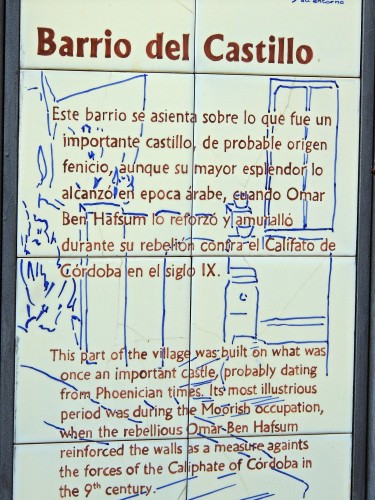 su entorno
Barrio del Castillo
Este barrio se asienta sobre lo que fue un
importante castillo, de probable origen
fenicio, aunque su mayor esplendor lo
alcanzó en epoca árabe, cuando Omar
Ben Hafsum lo reforzó y amuralló
durante su rebelión contra el Califato de
Córdoba en el siglo IX.
This part of the village was built on what was
once an important castle, probably dating
from Phoenician times. Its most illustrious
period was during the Moorish occupation,
when the rebellious Omar Ben Hafsum
reinforced the walls as a measure againts
the forces of the Caliphate of Córdoba in
the 9th century.